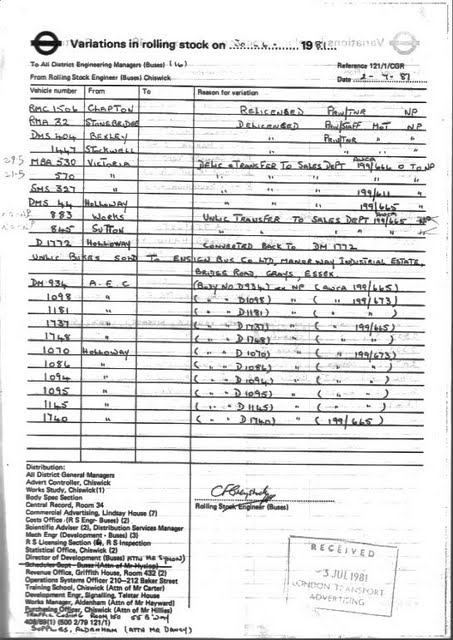 Variations in rolling stock on 1981
To All District Engineering Managers (Buses) (16)
Reference 121/1/CGR
From Rolling Stock Engineer (Buses) Chiswick
Date 2-7-81
Vehicle number From To Reason for variation
RMC 1506 CLAPTON RELICENSED PRIV/TNR NP
RMA 32 STONEBRIDGE DELICENSED PRIV/STAFF NP
DMS 404 BEXLEY " PRIV/TNR "
1447 STOCKWELL " " "
29-5 MBA 530 VICTORIA DELIC & TRANSFER TO SALES DEPT AWCA 199/664 O TO NP
21-5 570 " " " "
SMS 327 " " " 199/611 "
DMS 44 HOLLOWAY " " 199/665 "
883 WORKS UNLIC TRANSFER TO SALES DEPT AWCA 199/665
845 SUTTON " " "
D 1772 HOLLOWAY CONVERTED BACK TO DM 1772
UNLIC BUSES SOLD TO ENSIGN BUS CO LTD, MANOR WAY INDUSTRIAL ESTATE,
BRIDGE ROAD, GRAYS, ESSEX.
DM 934 A.E.C (BODY NO D934) NP (AWCA 199/665)
1098 " ( " " D1098) " ( " 199/673)
1181 " ( " " D1181) " ( " " )
1737 " ( " " D1737) " ( " 199/665)
1748 " ( " " D1748) " ( " " )
1070 HOLLOWAY ( " " D1070) " ( " 199/673)
1086 " ( " " D1086) " ( " " )
1094 " ( " " D1094) " ( " " )
1095 " ( " " D1095) " ( " " )
1145 " ( " " D1145) " ( " " )
1740 " ( " " D1740) " ( 199/665 )
Distribution:
All District General Managers
Advert Controller, Chiswick
Works Study, Chiswick(1)
Body Spec Section
Central Record, Room 34
Commercial Advertising, Lindsay House (7)
Costs Office (R S Engr- Buses) (2)
Scientific Adviser (2), Distribution Services Manager
Mech Engr (Development - Buses) (3)
R S Licensing Section, R S Inspection
Statistical Office, Chiswick (2)
Director of Development (Buses)
Schedules Dept - Buses (Attn of Mr Hyslop)
Revenue Office, Griffith House, Room 432 (2)
Operations Systems Officer 210—212 Baker Street
Training School, Chiswick (Attn of Mr Carter)
Development Engr, Signalling, Telstar House
Works Manager, Aldenham (Attn of Mr Hayward)
Purchasing Officer, Chiswick (Attn of Mr Hillier)
TRAFFIC CODING ROOM 150 55 B'WAY
408/89(1) (500 2/79 121/1)
SUPPLIES, ALDENHAM (ATTN MR DAVEY)
Rolling Stock Engineer (Buses)
RECEIVED
3 JUL 1981
LONDON TRANSPORT
ADVERTISING